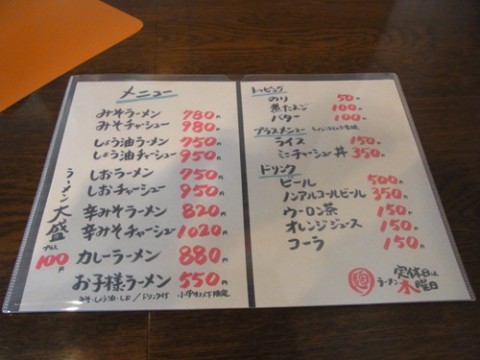 メニュー
みそラーメン 780円
みそチャーシュー 980円
しょう油ラーメン 750円
しょう油チャーシュー 950円
しおラーメン 750円
しおチャーシュー 950円
辛みそラーメン 820円
辛みそチャーシュー 1020円
カレーラーメン 880円
お子様ラーメン 550円
みそ・しょう油・しお / ドリンク付
ラーメン大盛
プラス
100円
トッピング
のり 50円
煮たまご 100円
バター 100円
プラスメニュー
ライス 150円
ミニチャーシュー丼 350円
ドリンク
ビール 500円
ノンアルコールビール 350円
ウーロン茶 150円
オレンジジュース 150円
コーラ 150円
定休日は
ラーメン 木曜日